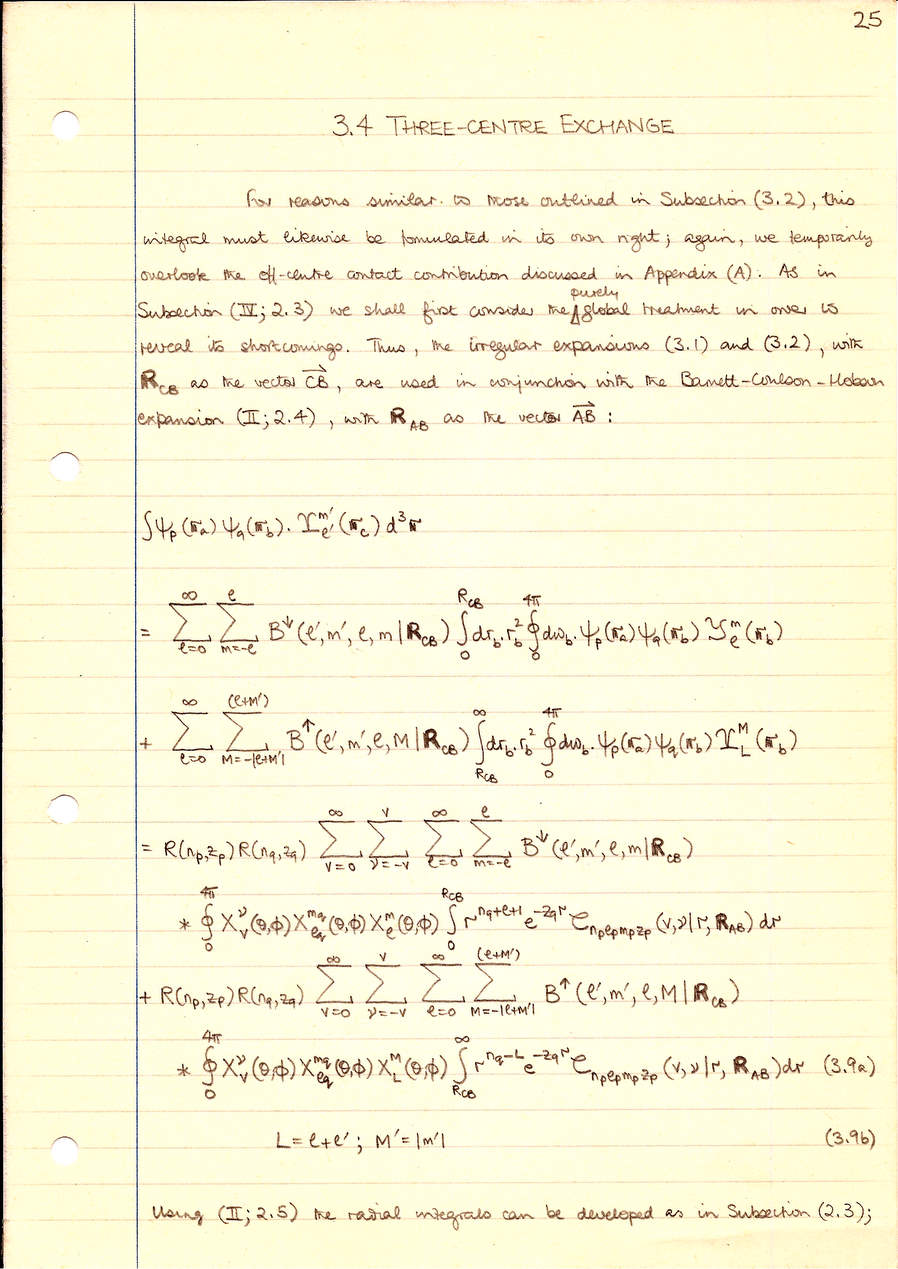 25
3.4 THREE-CENTRE EXCHANGE
For reasons similar to those outlined in Subsection (3.2), this
integral must likewise be formulated in its own right; again, we temporarily
overlook the off-centre contact contribution discussed in Appendix (A). As in
Subsection (IV; 2.3) we shall first consider the purely global treatment in order to
reveal its shortcomings. Thus, the irregular expansions (3.1) and (3.2), with
R_CB as the vector CB→, are used in conjunction with the Barnett-Coulson-Hobson
expansion (II; 2.4), with R_AB as the vector AB→ :
∫ψ_p(r_a) ψ_q(r_b). Υ_ℓ'^m'(r_c) d³r
= ∑_{ℓ=0}^{∞} ∑_{m=-ℓ}^{ℓ} B↓(ℓ',m',ℓ,m|R_CB) ∫_0^{R_CB} dr_b. r_b² ∮_0^{4π} dω_b. ψ_p(r_a) ψ_q(r_b) 𝒴_ℓ^m(r_b)
+ ∑_{ℓ=0}^{∞} ∑_{M=-|ℓ+M'|}^{(ℓ+M')} B↑(ℓ',m',ℓ,M|R_CB) ∫_{R_CB}^{∞} dr_b. r_b² ∮_0^{4π} dω_b. ψ_p(r_a) ψ_q(r_b) Υ_L^M(r_b)
= R(n_p,z_p) R(n_q,z_q) ∑_{v=0}^{∞} ∑_{ν=-v}^{v} ∑_{ℓ=0}^{∞} ∑_{m=-ℓ}^{ℓ} B↓(ℓ',m',ℓ,m|R_CB)
* ∮_0^{4π} X_v^ν(θ,φ) X_{ℓ_q}^{m_q}(θ,φ) X_ℓ^m(θ,φ) ∫_0^{R_CB} r^{n_q+ℓ+1} e^{-z_q r} C_{n_p ℓ_p m_p z_p}(v,ν|r, R_AB) dr
+ R(n_p,z_p) R(n_q,z_q) ∑_{v=0}^{∞} ∑_{ν=-v}^{v} ∑_{ℓ=0}^{∞} ∑_{M=-|ℓ+M'|}^{(ℓ+M')} B↑(ℓ',m',ℓ,M|R_CB)
* ∮_0^{4π} X_v^ν(θ,φ) X_{ℓ_q}^{m_q}(θ,φ) X_L^M(θ,φ) ∫_{R_CB}^{∞} r^{n_q-L} e^{-z_q r} C_{n_p ℓ_p m_p z_p}(v,ν|r, R_AB) dr (3.9a)
L = ℓ+ℓ' ; M' = |m'| (3.9b)
Using (II; 2.5) the radial integrals can be developed as in Subsection (2.3);